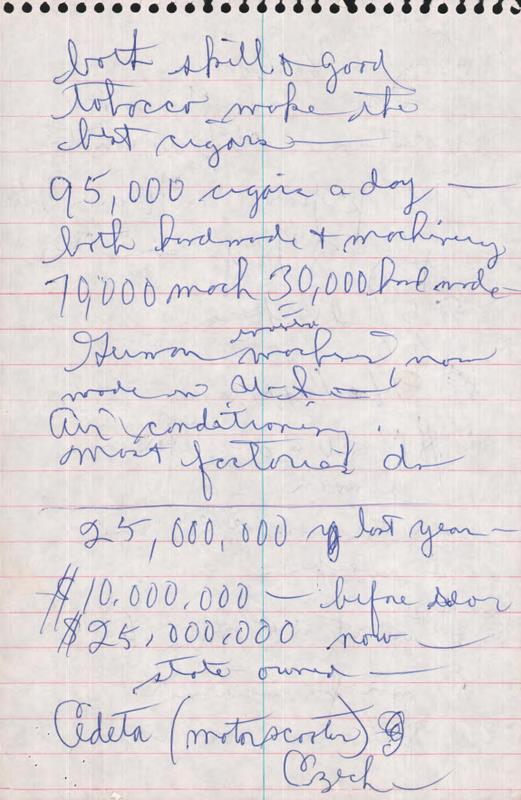 both skill & good
tobacco make the
best cigars —
95,000 cigars a day —
both handmade + machinery
70,000 mach 30,000 hand made
German machines now
made in
Air conditioning.
most factories do
25,000,000 last year —
$10,000,000 — before
$25,000,000 now —
state owned —
Cedeta (motorscooter)
Czech